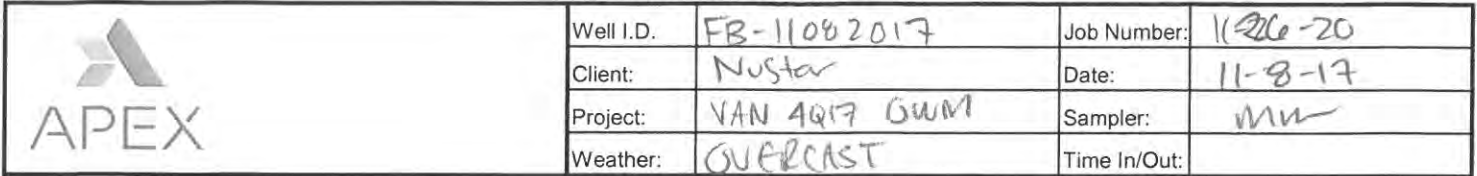 APEX
Well I.D. FB-11082017 Job Number: 1126-20
Client: NuStar Date: 11-8-17
Project: VAN 4Q17 GWM Sampler:
Weather: OVERCAST Time In/Out: